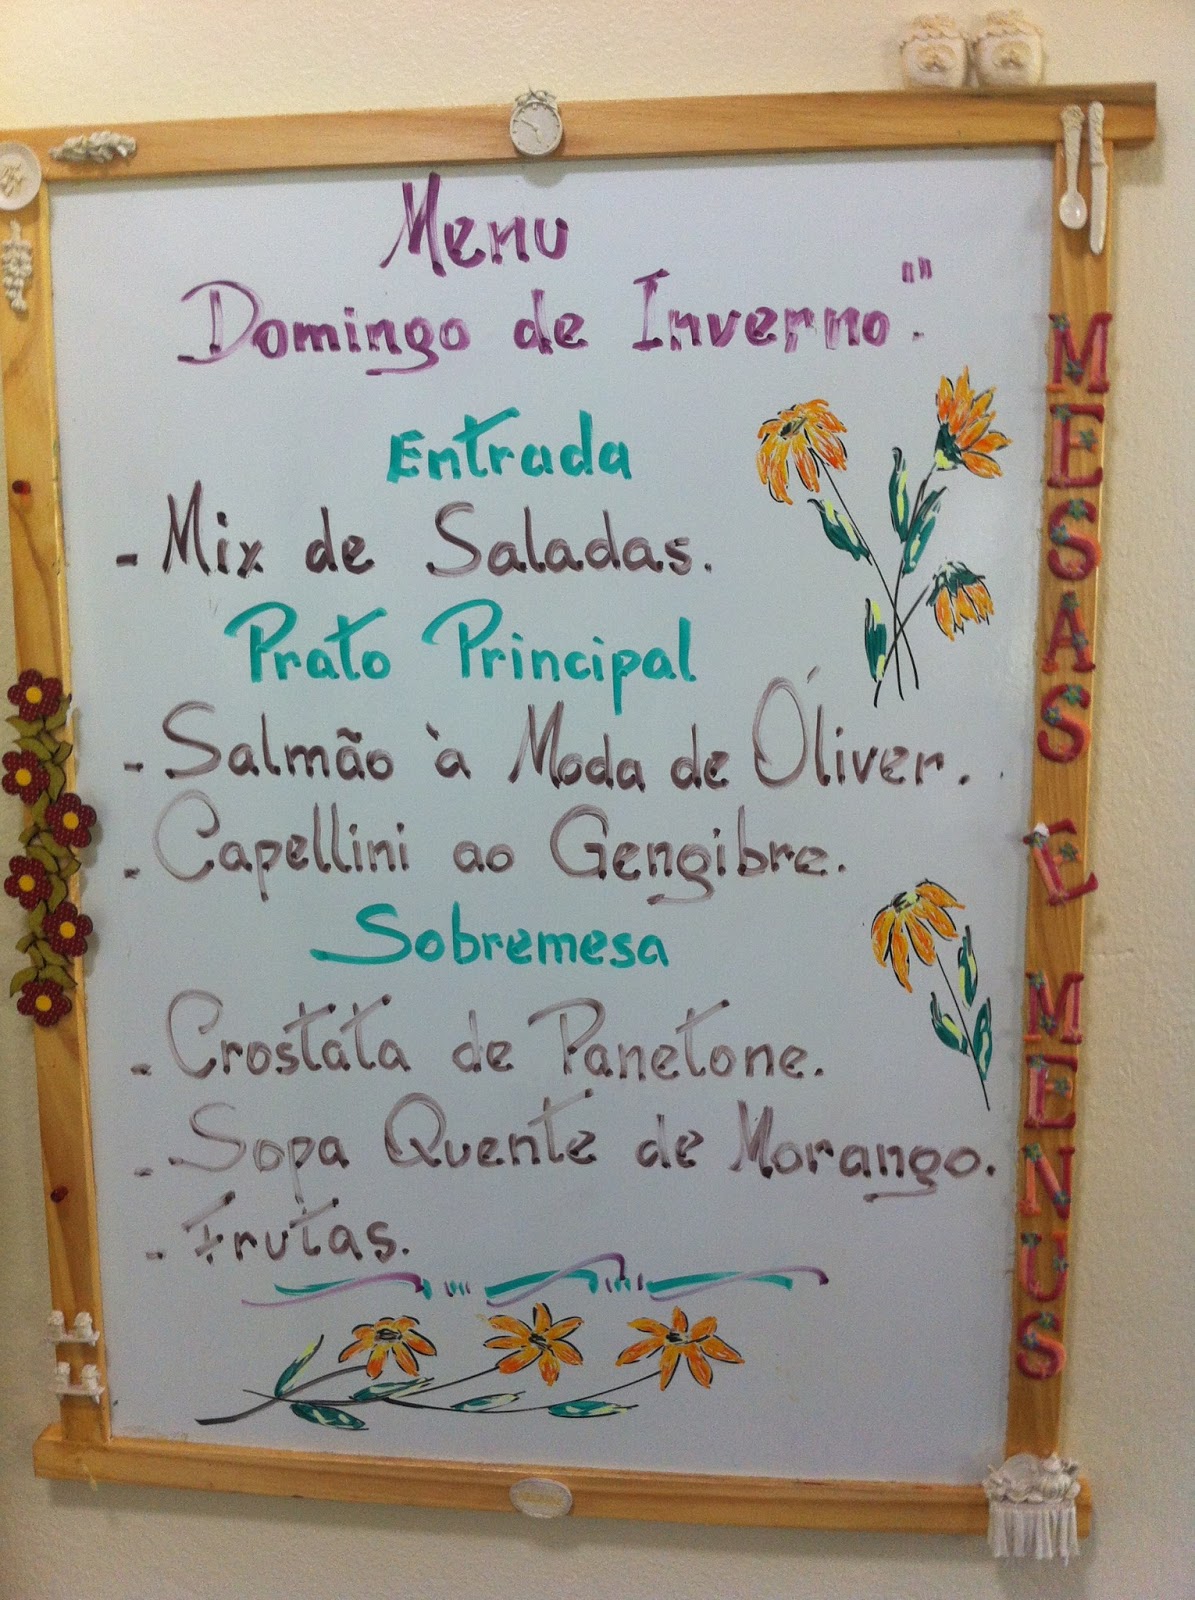 Menu
Domingo de Inverno".
Entrada
- Mix de Saladas.
Prato Principal
- Salmão à Moda de Óliver.
- Capellini ao Gengibre.
Sobremesa
- Crostata de Panetone.
- Sopa Quente de Morango.
- Frutas.
MESAS E MENUS